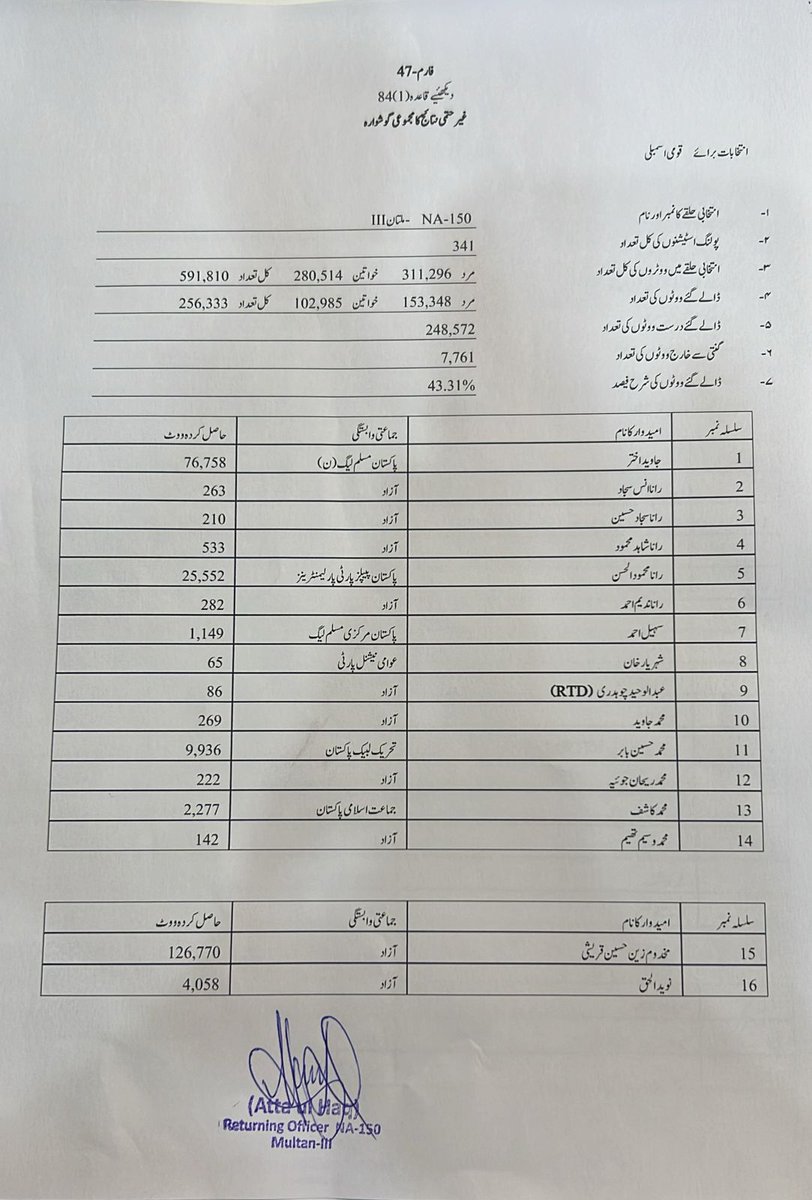 فارم-47
دیکھئیے قاعدہ 84(1)
غیر حتمی نتائج کا مجموعی گوشوارہ
انتخابات برائے قومی اسمبلی
۱- انتخابی حلقے کا نمبر اور نام NA-150 -ملتان III
۲- پولنگ اسٹیشنوں کی کل تعداد 341
۳- انتخابی حلقے میں ووٹروں کی کل تعداد مرد 311,296 خواتین 280,514 کل تعداد 591,810
۴- ڈالے گئے ووٹوں کی تعداد مرد 153,348 خواتین 102,985 کل تعداد 256,333
۵- ڈالے گئے درست ووٹوں کی تعداد 248,572
۶- گنتی سے خارج ووٹوں کی تعداد 7,761
۷- ڈالے گئے ووٹوں کی شرح فیصد 43.31%
سلسلہ نمبر امیدوار کا نام جماعتی وابستگی حاصل کردہ ووٹ
1 جاوید اختر پاکستان مسلم لیگ (ن) 76,758
2 رانا انس سجاد آزاد 263
3 رانا سجاد حسین آزاد 210
4 رانا شاہد محمود آزاد 533
5 رانا محمود الحسن پاکستان پیپلز پارٹی پارلیمنٹرینز 25,552
6 رانا ندیم احمد آزاد 282
7 سہیل احمد پاکستان مرکزی مسلم لیگ 1,149
8 شہریار خان عوامی نیشنل پارٹی 65
9 عبدالوحید چوہدری (RTD) آزاد 86
10 محمد جاوید آزاد 269
11 محمد حسین بابر تحریک لبیک پاکستان 9,936
12 محمد ریحان جوئیہ آزاد 222
13 محمد کاشف جماعت اسلامی پاکستان 2,277
14 محمد وسیم تھیم آزاد 142
سلسلہ نمبر امیدوار کا نام جماعتی وابستگی حاصل کردہ ووٹ
15 مخدوم زین حسین قریشی آزاد 126,770
16 نوید الحق آزاد 4,058
(Atta ul Haq)
Returning Officer NA-150
Multan-III